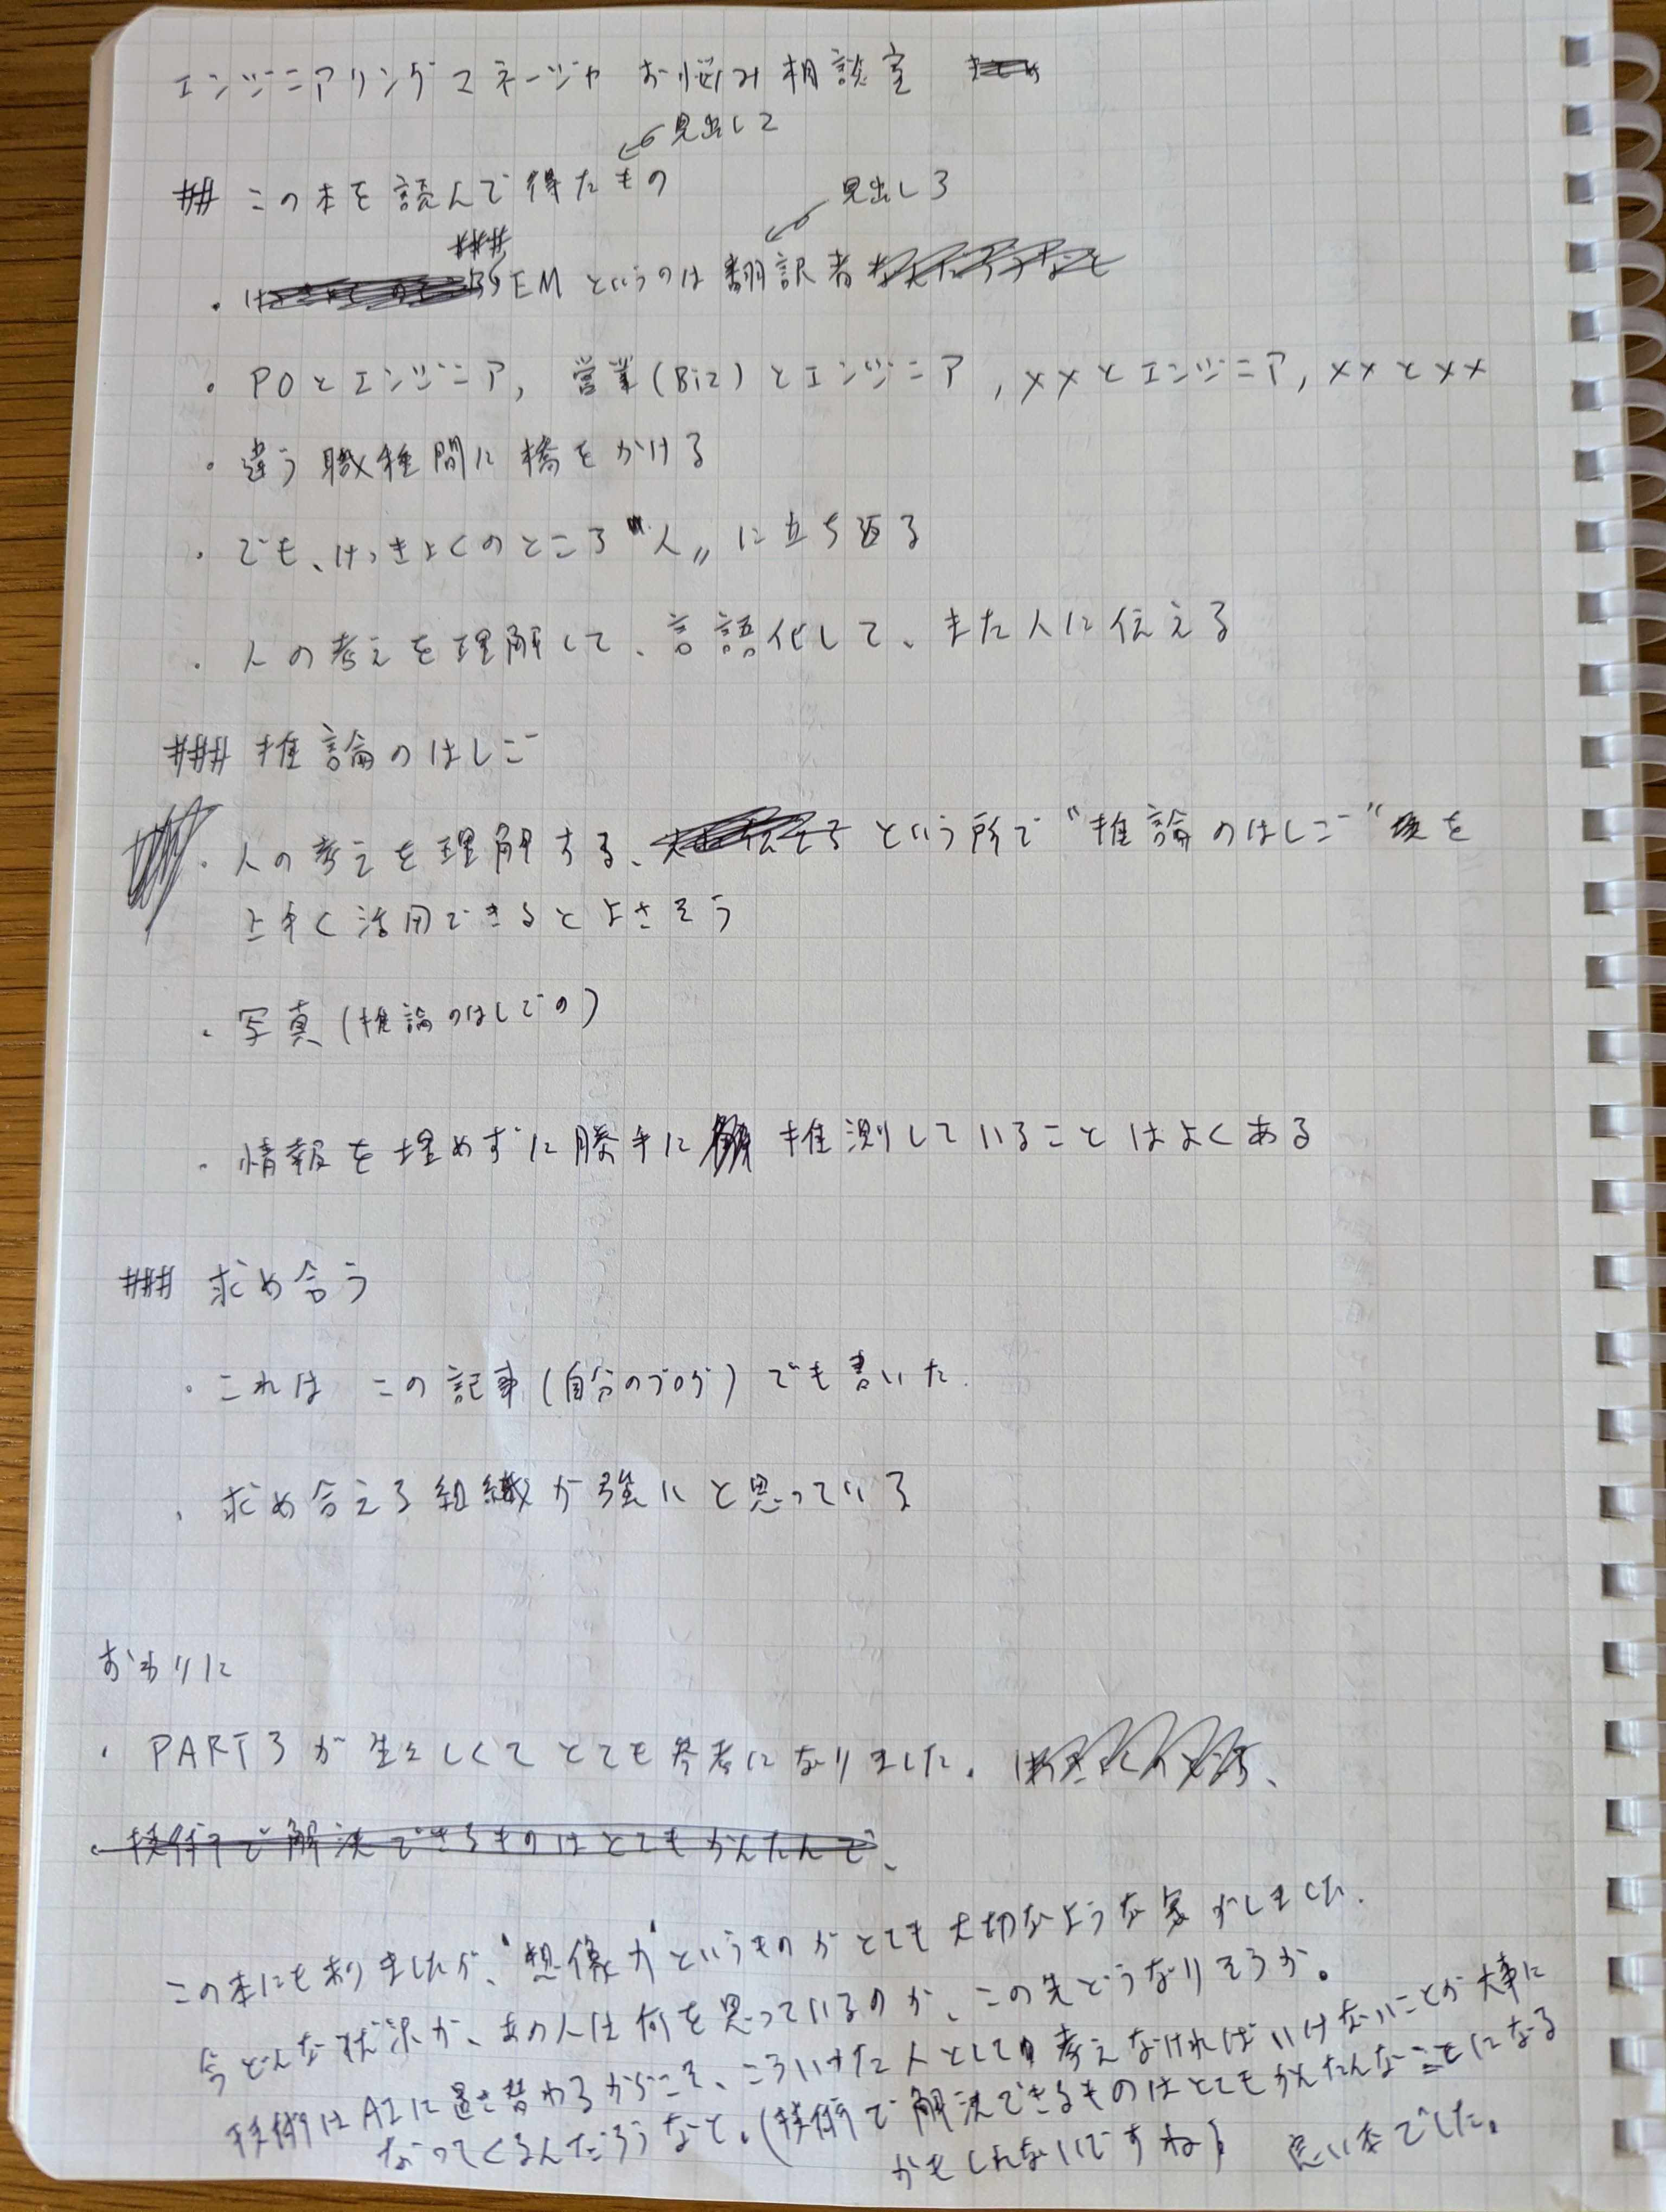 エンジニアリングマネージャ お悩み相談室
見出し2
## この本を読んで得たもの
見出し3
###
・EMというのは翻訳者
・POとエンジニア, 営業(Biz)とエンジニア, ××とエンジニア, ××と××
・違う職種間に橋をかける
・でも、けっきょくのところ"人〟に立ち返る
・人の考えを理解して、言語化して、また人に伝える
### 推論のはしご
・人の考えを理解する、という所で“推論のはしご”を
上手く活用できるとよさそう
・写真(推論のはしごの)
・情報を埋めずに勝手に推測していることはよくある
### 求め合う
・これは この記事(自分のブログ)でも書いた.
・求め合える組織が強いと思っている
おわりに
・PART3が生々しくてとても参考になりました。
・技術で解決できるものはとてもかんたんで、
この本にもありましたが、'想像力'というものがとても大切なような気がしました.
今どんな状況か、あの人は何を思っているのか、この先どうなりそうか。
技術はAIに置き替わるからこそ、こういった人としての考えなければいけないことが大事に
なってくるんだろうなと。(技術で解決できるものはとてもかんたんなことになる
かもしれないですね) 良い本でした。